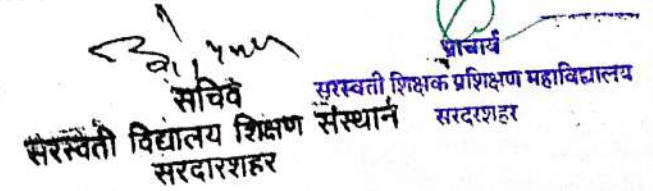 सचिव
सरस्वती विद्यालय शिक्षण संस्थान
सरदारशहर
प्राचार्य
सरस्वती शिक्षक प्रशिक्षण महाविद्यालय
सरदरशहर